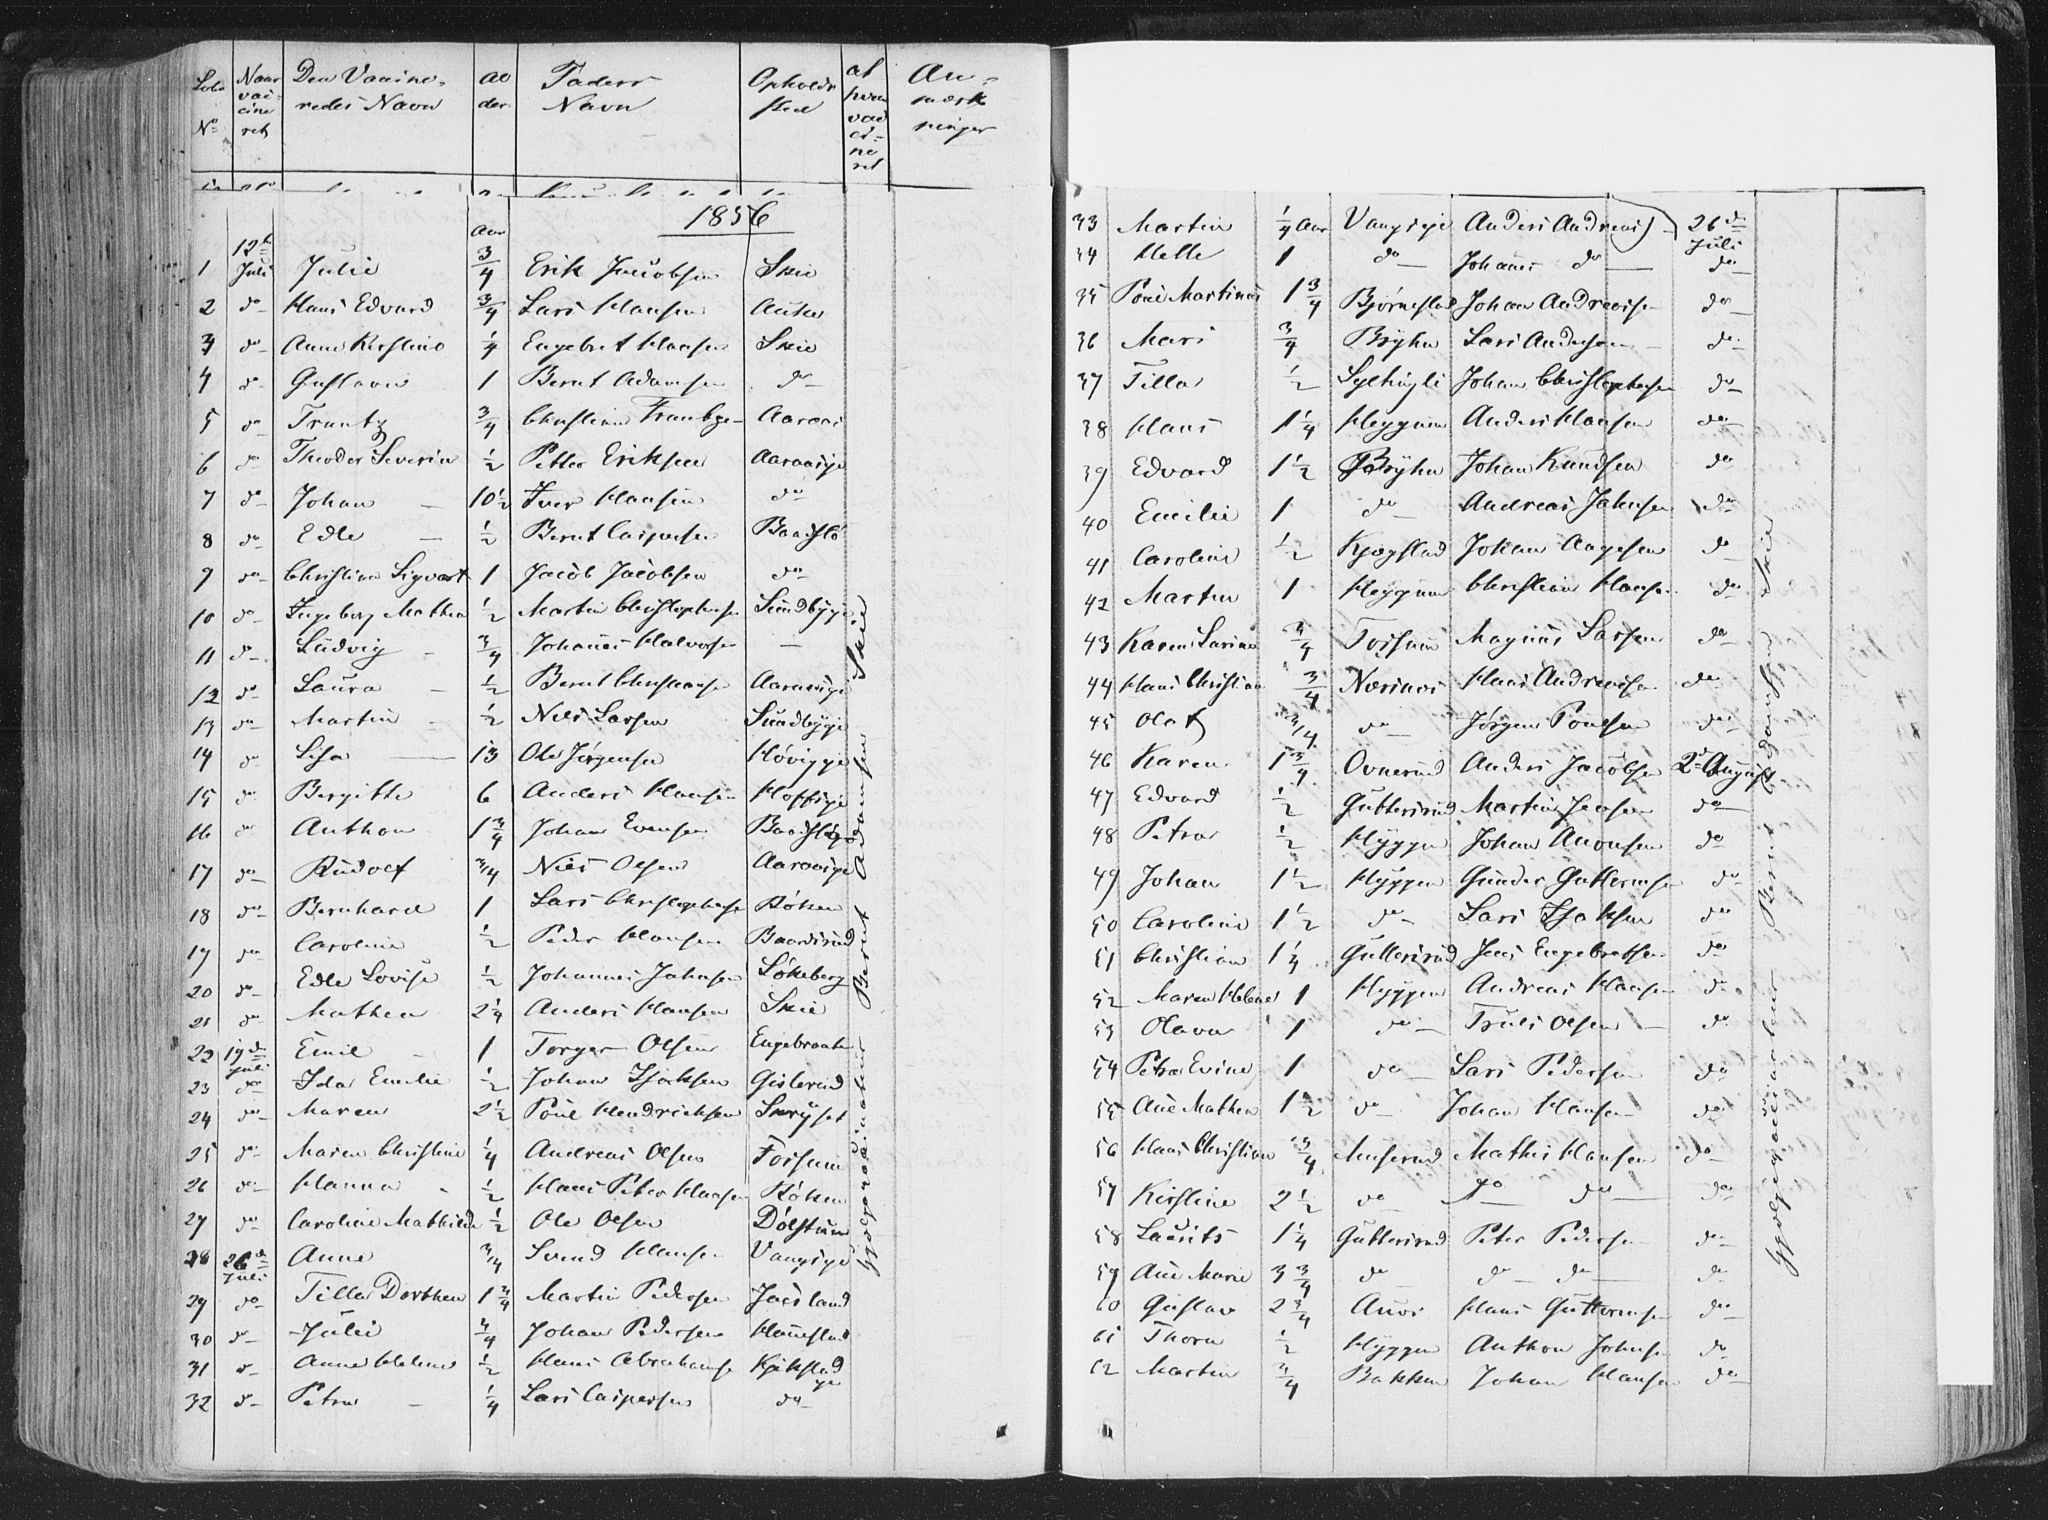 Lobe No | Naar vaccineret | Den Vaccineredes Navn | Alder | Faders Navn | Opholdssted | af hvem vaccineret | Anmærkninger
1856
Aar
1 12te Juli Julie 3/4 Erik Jacobsen Skie
2 do Hans Edvard 3/4 Lars Hansen
3 do Anne Kirstine 1/4 Engebret Hansen Skie
4 do Gustava 1 Bernt Adamsen do
5 do Trantz 3/4 Christian Aaraas
6 do Theodor Severin 1/2 Petter Eriksen Aaraasije
7 do Johan 10 1/2 Iver Hansen do
8 do Edle 1/2 Bernt Caspersen Baadslö
9 do Christian Sigvart 1 Jacob Jacobsen do
10 do Ingeborg Mathea 1/2 Martin Christophersen Sundbyije
11 do Ludvig 3/4 Johannes Halvorsen —
12 do Laura 1/2 Bernt Christiansen Aaraasije
13 do Martin 1/2 Niels Larsen Sundbyije
14 do Lisa 13 Ole Jørgensen Høvigije
15 do Bergitte 6 Anders Hansen Hoffsije
16 do Anthon 1 3/4 Johan Evensen Baadsløije
17 do Rudolf 3/4 Niels Olsen Aaraasije
18 do Bernhard 1 Lars Christophersen Röken
19 do Caroline 1/2 Peder Hansen Baardsrud
20 do Edle Lovise 1/2 Johannes Johnsen Lökeberg
21 do Mathea 2 1/4 Anders Hansen Skie
22 19de Juli Emil 1 Torger Olsen Engebraaten
23 do Ida Emilie 1/2 Johan Isaksen Gislerud
24 do Maren 2 1/2 Poul Hendriksen Skryset
25 do Maren Christine 1/4 Andreas Olsen Torsum
26 do Hanna 1/2 Hans Peter Hansen Röken
27 do Caroline Mathilde 1/2 Ole Olsen Dølstum
28 26de Juli Anne 3/4 Svend Hansen Vangsije
29 do Tilla Dorthea 1 3/4 Martin Pedersen Jarsland
30 do Julie 3/4 Johan Pedersen Hanestad
31 do Anne Helene 1/2 Hans Abrahamsen Kjekstadije
32 do Petra 1/4 Lars Caspersen do
Hjelpevaccinateur Bernt Adamsen Skie
33 Martin 1/4 Aar Vangsije Anders Andreas 26de Juli
34 Helle 1 do Johanes do do
35 Poul Martinus 1 3/4 Bjørnstad Johan Andreasen do
36 Mari 3/4 Bryhn Lars Andersen do
37 Tilla 1/2 Syltingli Johan Christophersen do
38 Hans 1 1/4 Heggum Anders Hansen do
39 Edvard 1 1/2 Bryhn Johan Knudsen do
40 Emilie 1 do Andreas Johnsen do
41 Caroline 1/2 Kjøgstad Johan Aagesen do
42 Martin 1 Heggum Christian Hansen do
43 Karen Larine 3/4 Torsum Magnus Larsen do
44 Hans Christian 3/4 Nærsnes Hans Andreasen do
45 Olaf 3/4 do Jørgen Poulsen do
46 Karen 1 3/4 Ovnerud Anders Jacobsen 2d August
47 Edvard 1/2 Guttersrud Martin Jensen do
48 Petra 1/2 Hyggen Johan Amonsen do
49 Johan 1 1/2 Hyggen Gunder Guttormsen do
50 Caroline 1 1/2 do Lars Isaksen do
51 Christian 1 1/4 Guttersrud Jens Engebretsen do
52 Maren Helene 1 Hyggen Andreas Hansen do
53 Olava 1 do Truls Olsen do
54 Petra Evine 1 do Lars Pedersen do
55 Ane Mathea 1 1/2 do Johan Hansen do
56 Hans Christian 3/4 Muserud Mathis Hansen do
57 Kirstine 2 1/2 do do do do
58 Laurits 1 1/4 Guttersrud Peter Pedersen do
59 Ane Marie 3 3/4 do do do do
60 Gustav 2 3/4 Auvi Hans Guttormsen do
61 Thora 1/2 Hyggen Anthon Johnsen do
62 Martin 3/4 Bakken Johan Hansen do
Hjelpevaccinateur Bernt Adamsen Skie